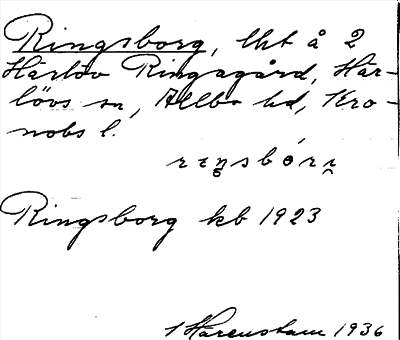 Ringsborg, lht å 2
Härlöv Ringagård, Här-
lövs sn, Allbo hd, Kro-
nobs l.
Ringsborg kb 1923
Harenstam 1936